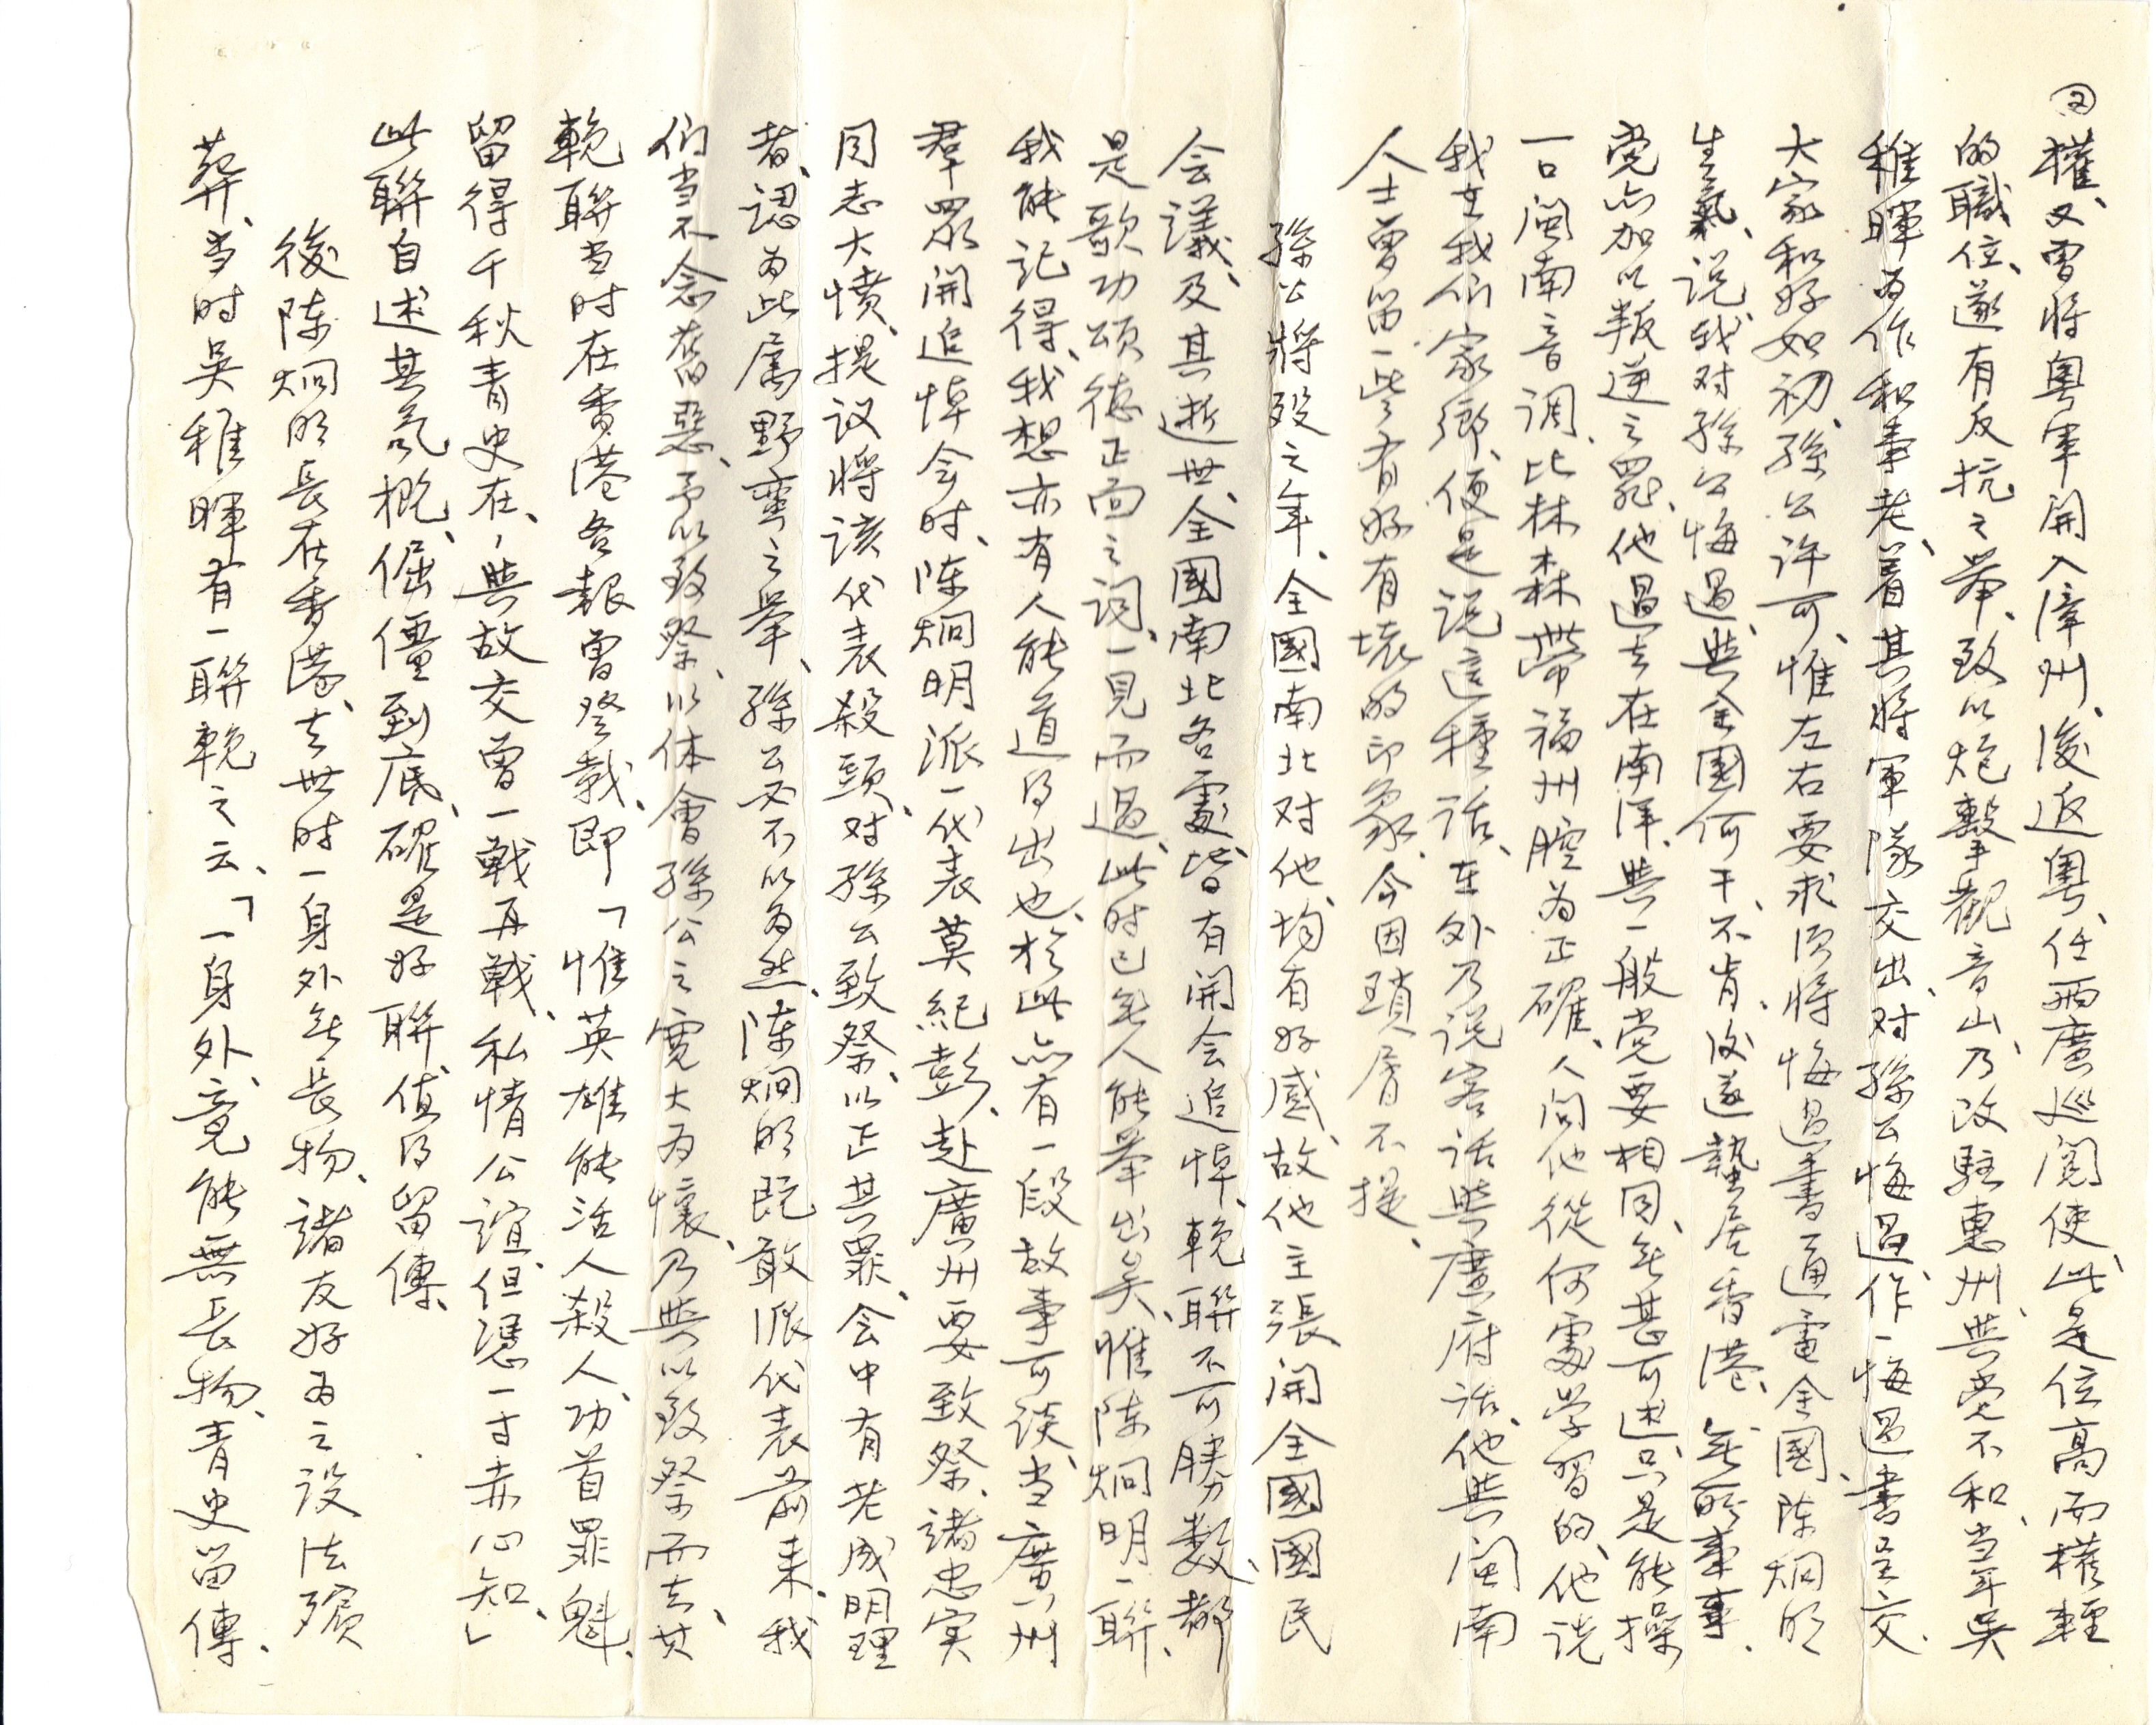 ㊁權、又曾將粵軍開入漳州、後返粵、任兩廣巡閱使、此是位高而權輕
的職位、遂有反抗之舉、致以炮擊觀音山、乃改駐惠州、與党不和、当年吳
稚暉为作和事老、着其將軍隊交出、对孫公悔過、作一悔過書呈交、
大家和好如初、孫公许可、惟左右要求須將悔過書通電全國、陈烱明
生氣、说我对孫公悔過、與全國何干、不肯、後遂蟄居香港、無所事事、
党亦加以叛逆之罪、他過去在南洋、與一般党要相同、無甚可述、只是能操
一口閩南音调、比林森帶福州腔为正確、人问他從何處学習的、他说
我在我们家鄉、便是说這種话、在外乃说客话與廣府话、他與閩南
人士曾留一些有好有壞的印象、今因瑣屑不提、
孫公將殁之年、全國南北对他、均有好感、故他主張開全國國民
会議、及其逝世、全國南北各處、皆有開会追悼、輓聯不可勝数、都
是歌功頌德正面之词、一見而過、此时已無人能举出矣、惟陈烱明一聯、
我能記得、我想亦有人能道得出也、於此亦有一段故事可谈、当廣州
羣眾開追悼会时、陈烱明派一代表莫紀彭、赴廣州要致祭、諸忠实
同志大憤、提议將该代表殺頭、对孫公致祭、以正其罪、会中有老成明理
者、認为此属野蠻之举、孫公必不以为然、陈烱明既敢派代表前来、我
们当不念舊惡、予以致祭、以体會孫公之寬大为懷、乃與以致祭而去、其
輓聯当时在香港各報曾登載、即「惟英雄能活人殺人、功首罪魁、
留得千秋青史在、與故交曾一戰再戰、私情公誼、但憑一寸赤心知、」
此聯自述其氣概、倔僵到底、確是好聯、值得留傳、
後陈烱明長在香港、去世时一身外無長物、諸友好为之设法殯
葬、当时吳稚暉有一聯輓之云、「一身外、竟能無長物、青史留傳、